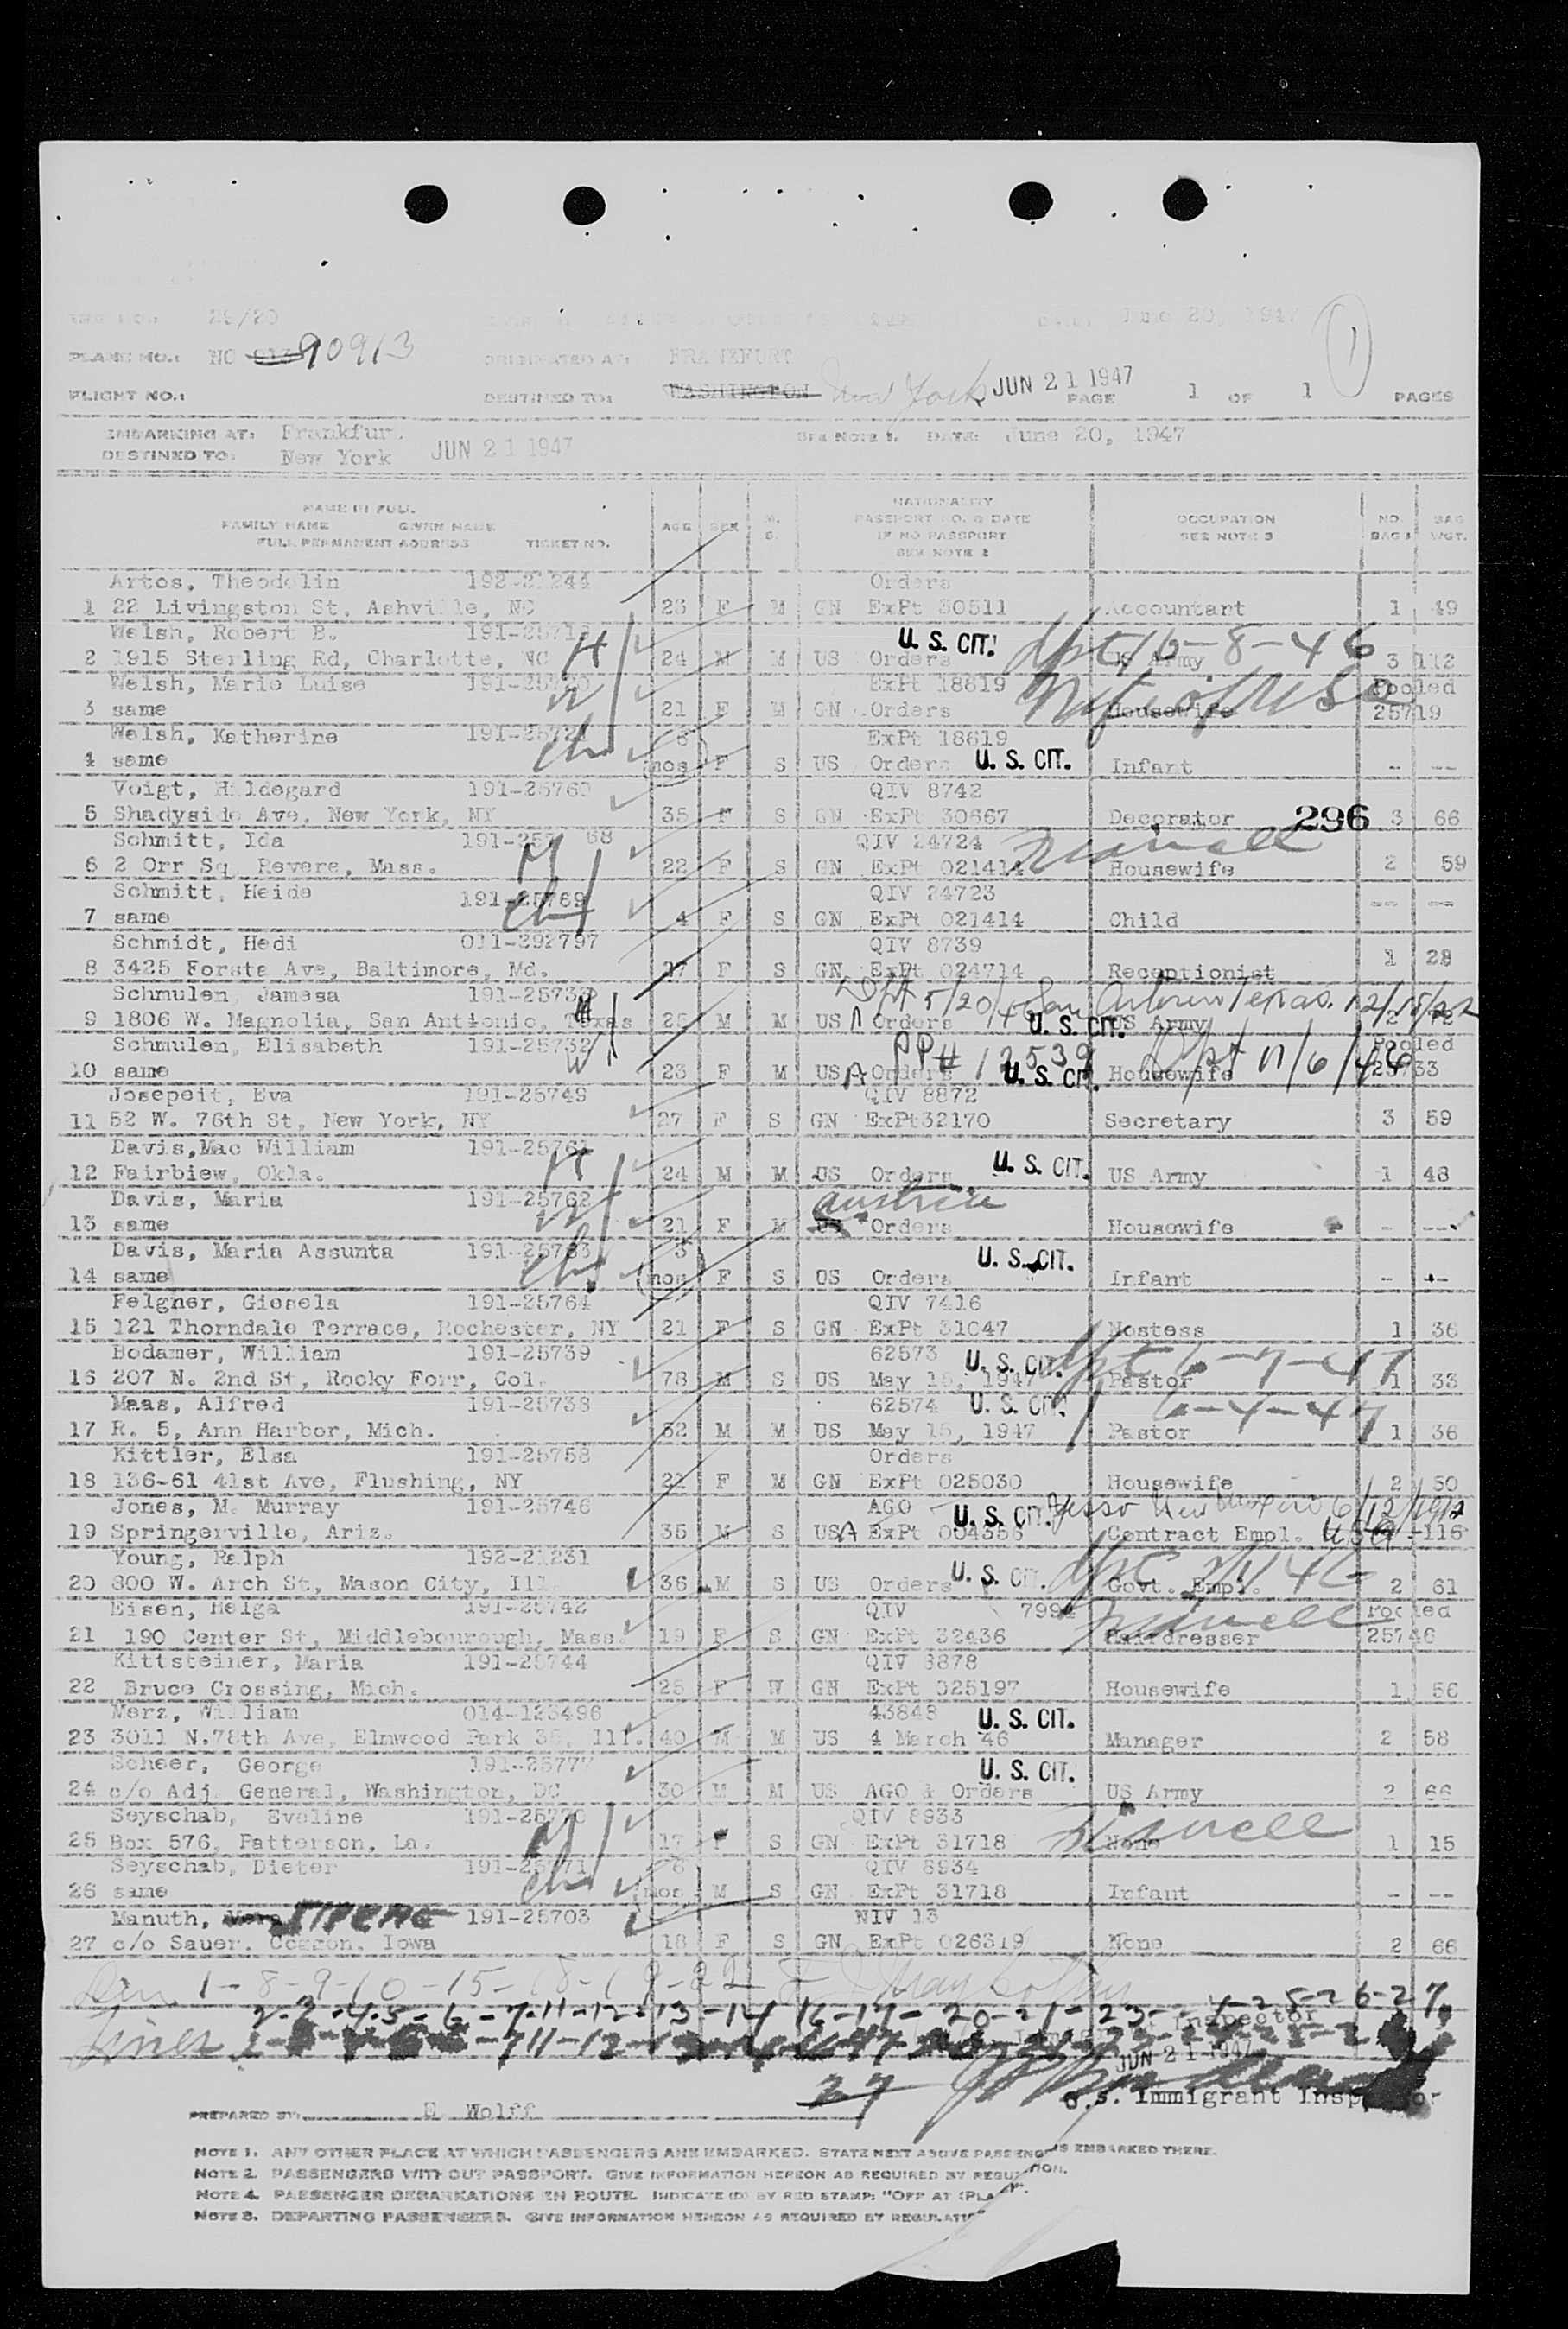 29/20
June 20, 1947
1
PLANE NO.: NC 90913
ORIGINATED AT: FRANKFURT
FLIGHT NO.:
DESTINED TO: WASHINGTON New York JUN 21 1947
PAGE 1 OF 1 PAGES
EMBARKING AT: Frankfurt
SEE NOTE 1. DATE: June 20, 1947
DESTINED TO: New York JUN 21 1947
NAME IN FULL
FAMILY NAME GIVEN NAME
FULL PERMANENT ADDRESS TICKET NO.
AGE SEX M. S.
NATIONALITY
PASSPORT NO. & DATE
IF NO PASSPORT
SEE NOTE 2
OCCUPATION
SEE NOTE 3
NO. BAGS
BAG WGT.
Artos, Theodolin 192-21244 Orders
1 22 Livingston St, Ashville, NC 23 F M GN ExPt 30511 Accountant 1 49
Welsh, Robert B. U. S. CIT.
2 1915 Sterling Rd, Charlotte, NC H 24 M M US Orders US Army 3 112
Welsh, Marie Luise W ExPt 18619 Pooled
3 same 21 F M GN Orders Housewife 25719
Welsh, Katherine 191-25721 Ch 8 ExPt 18619
4 same mos F S US Orders U. S. CIT. Infant - --
Voigt, Hildegard 191-25760 QIV 8742
5 Shadyside Ave, New York, NY 35 F S GN ExPt 30667 Decorator 296 3 66
Schmitt, Ida 68 QIV 24724
6 2 Orr Sq, Revere, Mass. M 22 F S GN ExPt 021414 Housewife 2 59
Schmitt, Heide 191-25769 Ch QIV 24723 -- --
7 same 4 F S GN ExPt 021414 Child
Schmidt, Hedi 011-292797 QIV 8739 1 28
8 3425 Forste Ave, Baltimore, Md. 27 F S GN ExPt 024714 Receptionist
Schmulen, Jamesa San Antonio Texas. 12/15/22
9 1806 W. Magnolia, San Antionio, Texas H 25 M M US A Orders U. S. CIT. US Army 2 72
Schmulen, Elisabeth 191-25732 W PP# 12539 Pooled
10 same 23 F M US A Orders U. S. CIT. Housewife 11/6/46 25733
Josepeit, Eva 191-25749 QIV 8872
11 52 W. 76th St, New York, NY 27 F S GN ExPt32170 Secretary 3 59
Davis,Mac William 191-25761
12 Fairbiew, Okla. H 24 M M US Orders U. S. CIT. US Army 1 48
Davis, Maria 191-25762 W Austria
13 same 21 F M US Orders Housewife - --
Davis, Maria Assunta 191-25763 Ch 3 U. S. CIT.
14 same mos F S US Orders Infant - --
Felgner, Giesela 191-25764 QIV 7416
15 121 Thorndale Terrace, Rochester, NY 21 F S GN ExPt 31047 Hostess 1 36
Bodamer, William 191-25739 62573 U. S. CIT. 6-7-47
16 207 N. 2nd St, Rocky Forr, Col. 78 M S US May 15, 1947 Pastor 1 33
Maas, Alfred 191-25738 62574 U. S. CIT. 6-4-47
17 R. 5, Ann Harbor, Mich. 52 M M US May 15, 1947 Pastor 1 36
Kittler, Elsa 191-25758 Orders
18 136-61 41st Ave, Flushing, NY 22 F M GN ExPt 025030 Housewife 2 50
Jones, M. Murray 191-25746 AGO U. S. CIT. New Mexico 6/12/1912
19 Springerville, Ariz. 35 M S US A ExPt 004356 Contract Empl. 116
Young, Ralph 192-21231 U. S. CIT.
20 800 W. Arch St, Mason City, Ill. 36 M S US Orders Govt. Empl. 2 61
Eisen, Helga 191-25742 QIV 7994 Pooled
21 190 Center St, Middlebourough, Mass. 19 F S GN ExPt 32436 Hairdresser 25746
Kittsteiner, Maria 191-25744 QIV 8878
22 Bruce Crossing, Mich. 25 F W GN ExPt 025197 Housewife 1 56
Merz, William 014-123496 43848 U. S. CIT.
23 3011 N.78th Ave, Elmwood Park 35, Ill. 40 M M US 4 March 46 Manager 2 58
Scheer, George 191-25777 U. S. CIT.
24 c/o Adj. General, Washington, DC 30 M M US AGO & Orders US Army 2 66
Seyschab, Eveline 191-25770 QIV 8933
25 Box 576, Patterson, La. M 17 F S GN ExPt 31718 None 1 15
Seyschab, Dieter 191-25771 Ch 8 QIV 8934
26 same mos M S GN ExPt 31718 Infant - --
Manuth, 191-25703 NIV 13
27 c/o Sauer, Coggon, Iowa 18 F S GN ExPt 026319 None 2 66
1-8-9-10-15-18-19-22
2-3-4-5-6-7-11-12-13-14 16-17-20-21-23-24-25-26-27
Lines
Immigrant Inspector
JUN 21 1947
27
U.S. Immigrant Inspector
PREPARED BY: E Wolff
NOTE 1. ANY OTHER PLACE AT WHICH PASSENGERS ARE EMBARKED. STATE NEXT ABOVE PASSENGERS EMBARKED THERE.
NOTE 2. PASSENGERS WITHOUT PASSPORT. GIVE INFORMATION HEREON AS REQUIRED BY REGULATION.
NOTE 4. PASSENGER DEBARKATIONS EN ROUTE. INDICATE (D) BY RED STAMP: "OFF AT (PLACE)".
NOTE 3. DEPARTING PASSENGERS. GIVE INFORMATION HEREON AS REQUIRED BY REGULATION